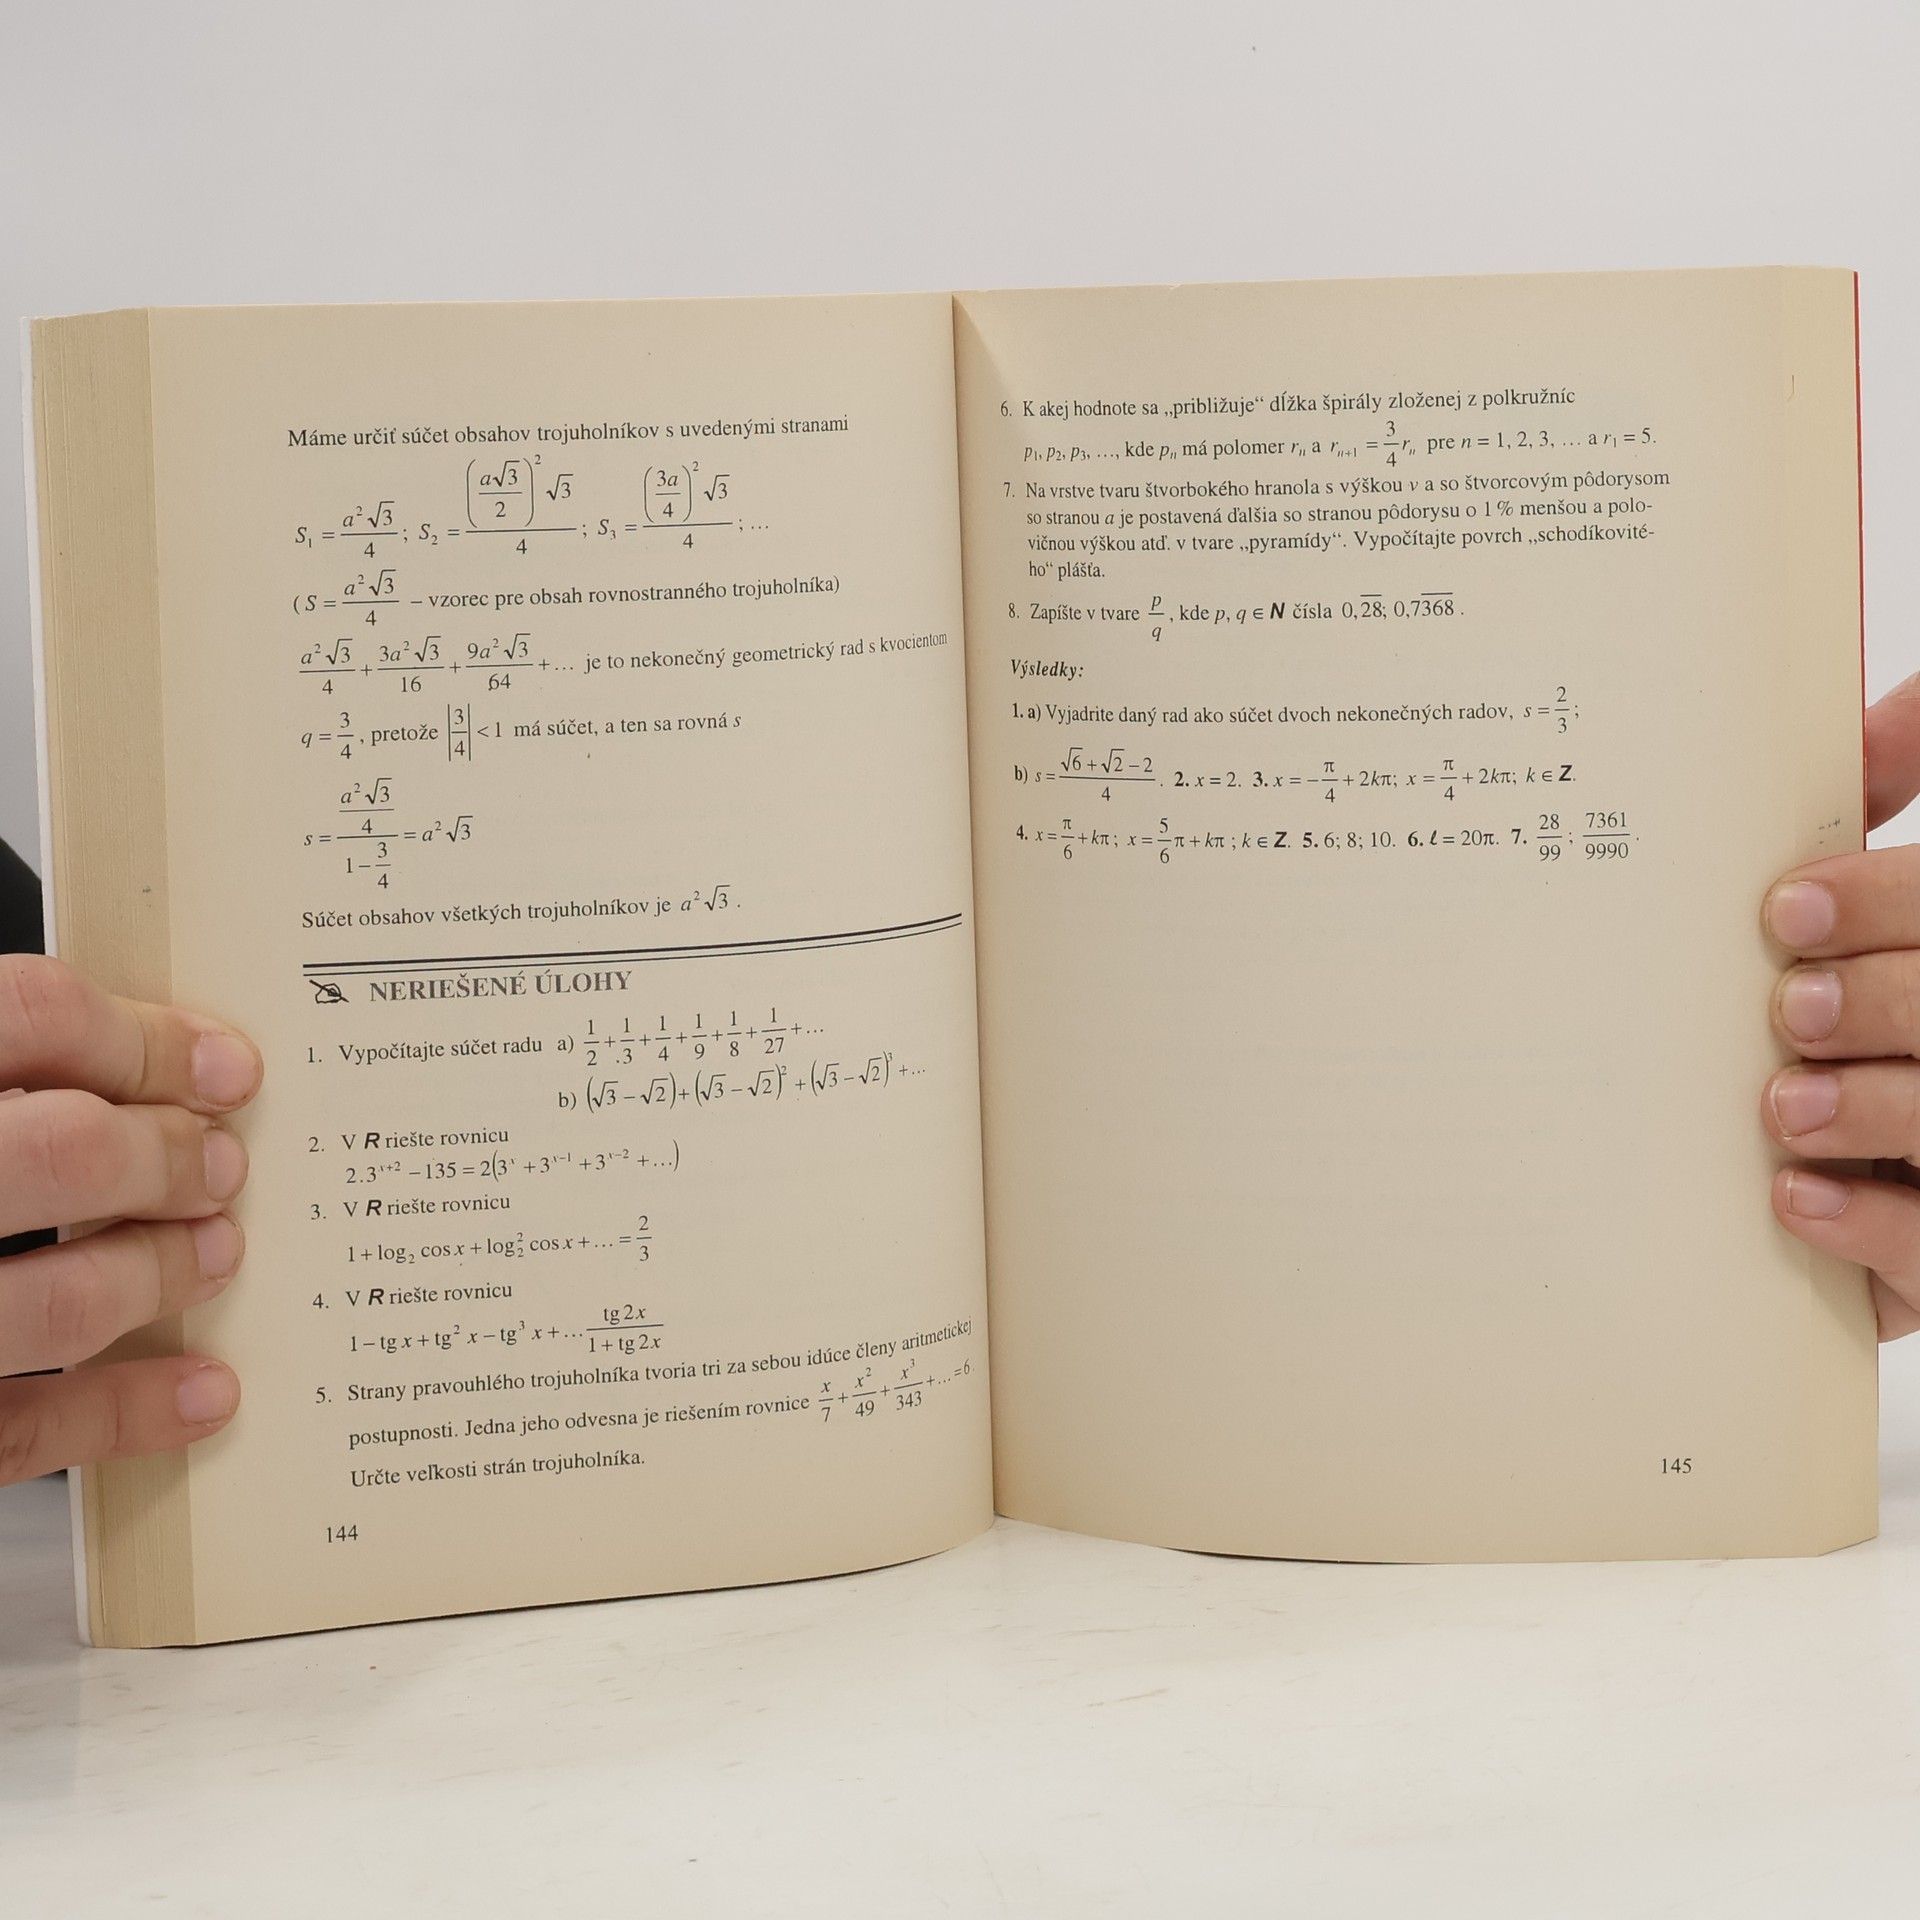 Máme určiť súčet obsahov trojuholníkov s uvedenými stranami
S₁ = a²√3/4 ; S₂ = (a√3/2)²√3/4 ; S₃ = (3a/4)²√3/4 ; …
( S = a²√3/4 – vzorec pre obsah rovnostranného trojuholníka)
a²√3/4 + 3a²√3/16 + 9a²√3/64 + … je to nekonečný geometrický rad s kvocientom
q = 3/4 , pretože |3/4| < 1 má súčet, a ten sa rovná s
s = (a²√3/4)/(1 − 3/4) = a²√3
Súčet obsahov všetkých trojuholníkov je a²√3 .
NERIEŠENÉ ÚLOHY
1. Vypočítajte súčet radu a) 1/2 + 1/3 + 1/4 + 1/9 + 1/8 + 1/27 + …
b) (√3 − √2) + (√3 − √2)² + (√3 − √2)³ + …
2. V R riešte rovnicu
2.3ˣ⁺² − 135 = 2(3ˣ + 3ˣ⁻¹ + 3ˣ⁻² + …)
3. V R riešte rovnicu
1 + log₂ cos x + log₂² cos x + … = 2/3
4. V R riešte rovnicu
1 − tg x + tg² x − tg³ x + … tg 2x/(1 + tg 2x)
5. Strany pravouhlého trojuholníka tvoria tri za sebou idúce členy aritmetickej
postupnosti. Jedna jeho odvesna je riešením rovnice x/7 + x²/49 + x³/343 + … = 6.
Určte veľkosti strán trojuholníka.
144
6. K akej hodnote sa „približuje“ dĺžka špirály zloženej z polkružníc
p₁, p₂, p₃, …, kde pₙ má polomer rₙ a rₙ₊₁ = 3/4 rₙ pre n = 1, 2, 3, … a r₁ = 5.
7. Na vrstve tvaru štvorbokého hranola s výškou v a so štvorcovým pôdorysom
so stranou a je postavená ďalšia so stranou pôdorysu o 1 % menšou a polo-
vičnou výškou atď. v tvare „pyramídy“. Vypočítajte povrch „schodíkovité-
ho“ plášťa.
8. Zapíšte v tvare p/q , kde p, q ∈ N čísla 0,2̅8̅; 0,73̅6̅8̅ .
Výsledky:
1. a) Vyjadrite daný rad ako súčet dvoch nekonečných radov, s = 2/3 ;
b) s = (√6 + √2 − 2)/4 . 2. x = 2. 3. x = − π/4 + 2kπ; x = π/4 + 2kπ; k ∈ Z.
4. x = π/6 + kπ ; x = 5/6 π + kπ ; k ∈ Z. 5. 6; 8; 10. 6. ℓ = 20π. 7. 28/99 ; 7361/9990 .
145